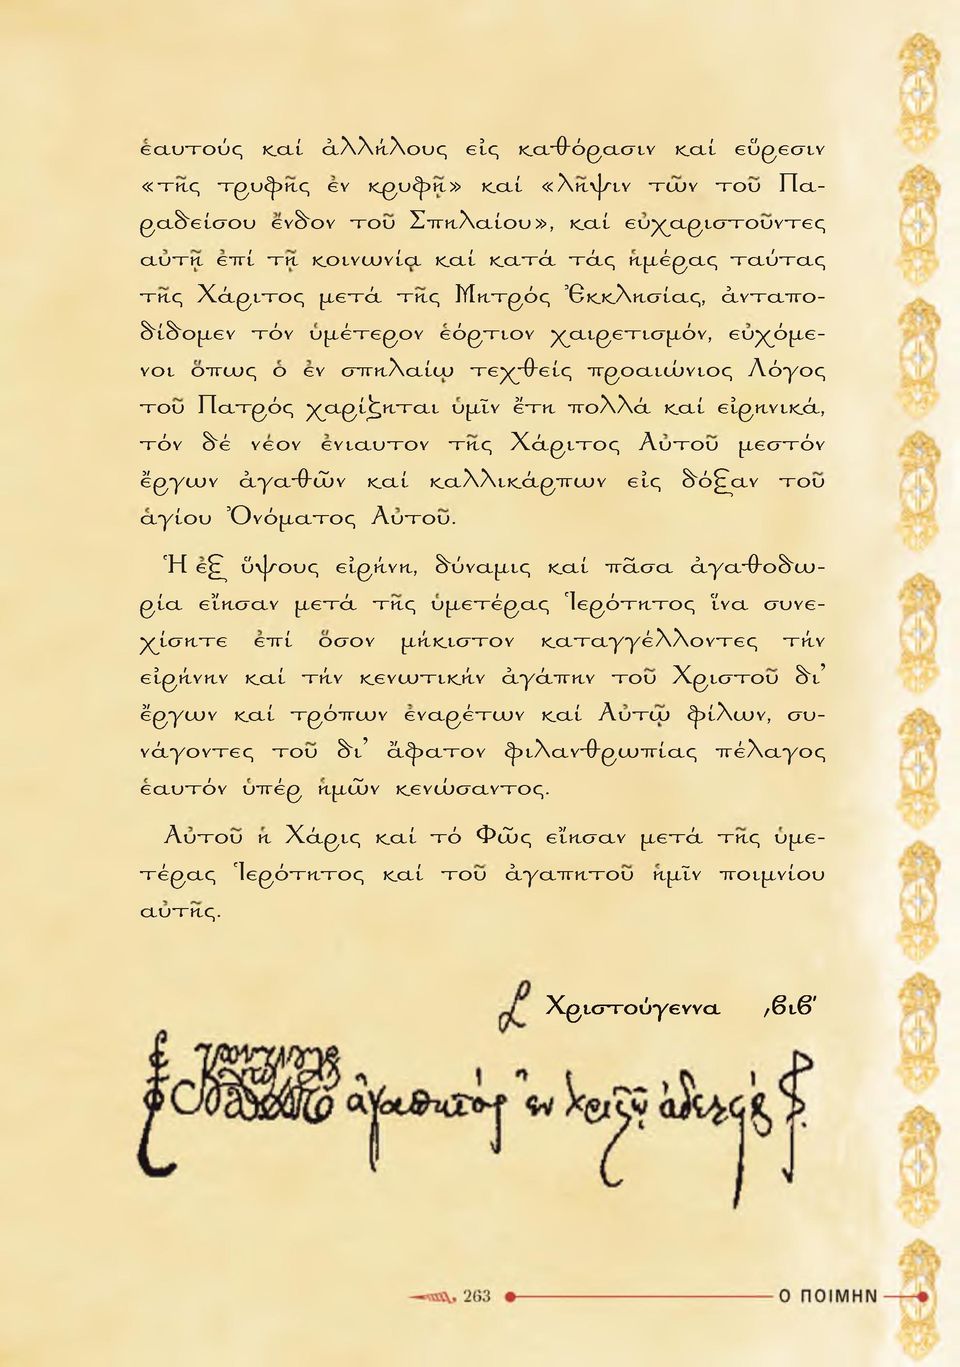 ἑαυτούς καί ἀλλήλους εἰς καθόρασιν καί εὕρεσιν
«τῆς τρυφῆς ἐν κρυφῇ» καί «λῆψιν τῶν τοῦ Πα-
ραδείσου ἔνδον τοῦ Σπηλαίου», καί εὐχαριστοῦντες
αὐτῇ ἐπί τῇ κοινωνίᾳ καί κατά τάς ἡμέρας ταύτας
τῆς Χάριτος μετά τῆς Μητρός Ἐκκλησίας, ἀνταπο-
δίδομεν τόν ὑμέτερον ἑόρτιον χαιρετισμόν, εὐχόμε-
νοι ὅπως ὁ ἐν σπηλαίῳ τεχθείς προαιώνιος Λόγος
τοῦ Πατρός χαρίζηται ὑμῖν ἔτη πολλά καί εἰρηνικά,
τόν δέ νέον ἐνιαυτον τῆς Χάριτος Αὐτοῦ μεστόν
ἔργων ἀγαθῶν καί καλλικάρπων εἰς δόξαν τοῦ
ἁγίου Ὀνόματος Αὐτοῦ.
Ἡ ἐξ ὕψους εἰρήνη, δύναμις καί πᾶσα ἀγαθοδω-
ρία εἴησαν μετά τῆς ὑμετέρας Ἱερότητος ἵνα συνε-
χίσητε ἐπί ὅσον μήκιστον καταγγέλλοντες τήν
εἰρήνην καί τήν κενωτικήν ἀγάπην τοῦ Χριστοῦ δι’
ἔργων καί τρόπων ἐναρέτων καί Αὐτῷ φίλων, συ-
νάγοντες τοῦ δι’ ἄφατον φιλανθρωπίας πέλαγος
ἑαυτόν ὑπέρ ἡμῶν κενώσαντος.
Αὐτοῦ ἡ Χάρις καί τό Φῶς εἴησαν μετά τῆς ὑμε-
τέρας Ἱερότητος καί τοῦ ἀγαπητοῦ ἡμῖν ποιμνίου
αὐτῆς.
Χριστούγεννα ͵βιβ'
ἀγαπητὸς ἐν Χριστῷ ἀδελφὸς
263 Ο ΠΟΙΜΗΝ